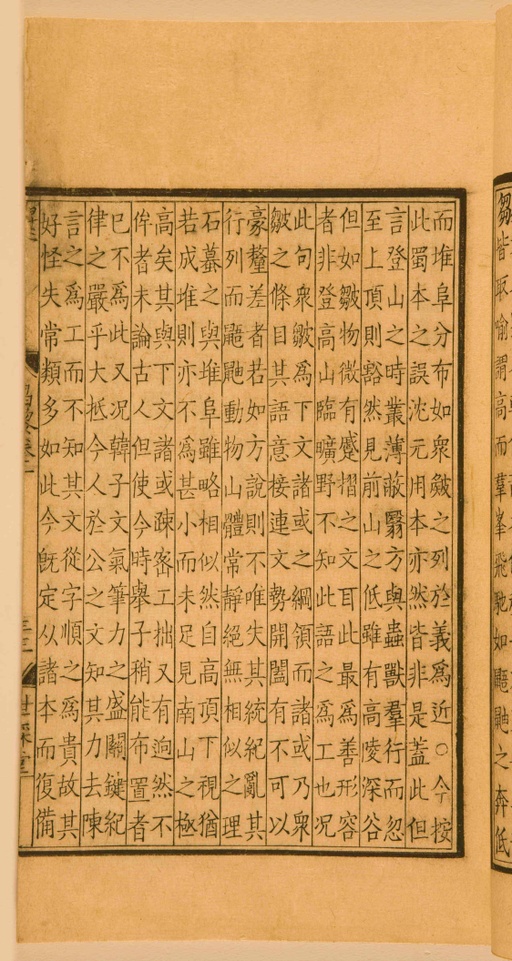 而堆阜分布如衆皺之列於義爲近○今按
此蜀本之誤沈元用本亦然皆非是蓋此但
言登山之時叢薄蔽翳方與蟲獸羣行而忽
至上頂則豁然見前山之低雖有高陵深谷
但如皺物微有蹙摺之文耳此最爲善形容
者非登高山臨曠野不知此語之爲工也况
此句衆皺爲下文諸或之綱領而諸或乃衆
皺之條目其語意接連文勢開闔有不可以
豪釐差者若如方說則不唯失其統紀亂其
行列而鼯鼬動物山體常靜絕無相似之理
石墓之與堆阜雖略相似然自高頂下視猶
若成堆則亦不爲甚小而未足見南山之極
高矣其與下文諸或疎宻工拙又有逈然不
侔者未論古人但使今時舉子稍能布置者
已不爲此又况韓子文氣筆力之盛關鍵紀
律之嚴乎大抵今人於公之文知其力去陳
言之爲工而不知其文從字順之爲貴故其
好怪失常類多如此今旣定从諸本而復備